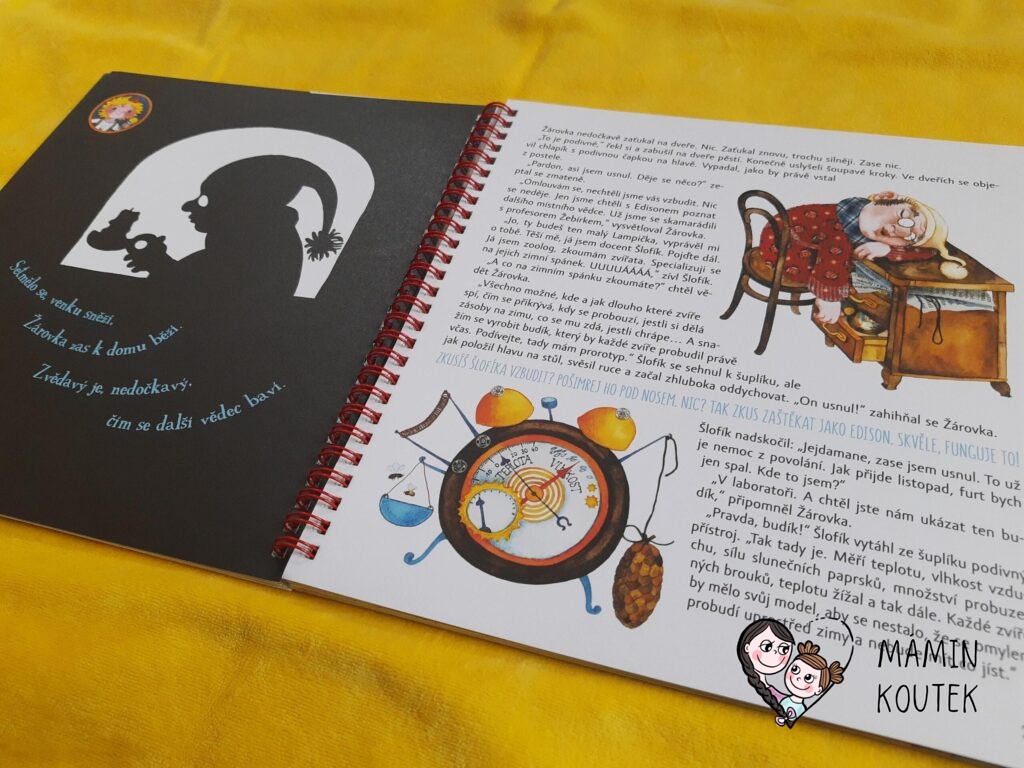 Setmělo se, venku sněží.
Žárovka zas k domu běží.
Zvědavý je, nedočkavý:
čím se další vědec baví.
Žárovka nedočkavě zaťukal na dveře. Nic. Zaťukal znovu, trochu silněji. Zase nic.
„To je podivné,“ řekl si a zabušil na dveře pěstí. Konečně uslyšeli šoupavé kroky. Ve dveřích se obje-
vil chlapík s podivnou čapkou na hlavě. Vypadal, jako by právě vstal
z postele.
„Pardon, asi jsem usnul. Děje se něco?“ ze-
ptal se zmateně.
„Omlouvám se, nechtěli jsme vás vzbudit. Nic
se neděje. Jen jsme chtěli s Edisonem poznat
dalšího místního vědce. Už jsme se skamarádili
s profesorem Žebírkem,“ vysvětloval Žárovka.
„Jo, ty budeš ten malý Lampička, vyprávěl mi
o tobě. Těší mě, já jsem docent Šlofík. Pojďte dál.
Já jsem zoolog, zkoumám zvířata. Specializuji se
na jejich zimní spánek. UUUUÁÁÁÁ,“ zívl Šlofík.
„A co na zimním spánku zkoumáte?“ chtěl vě-
dět Žárovka.
„Všechno možné, kde a jak dlouho které zvíře
spí, čím se přikrývá, kdy se probouzí, jestli si dělá
zásoby na zimu, co se mu zdá, jestli chrápe... A sna-
žím se vyrobit budík, který by každé zvíře probudil právě
včas. Podívejte, tady mám prorotyp.“ Šlofík se sehnul k šuplíku, ale
jak položil hlavu na stůl, svěsil ruce a začal zhluboka oddychovat. „On usnul!“ zahihňal se Žárovka.
ZKUSÍŠ ŠLOFÍKA VZBUDIT? POŠIMREJ HO POD NOSEM. NIC? TAK ZKUS ZAŠTĚKAT JAKO EDISON. SKVĚLE, FUNGUJE TO!
TEPLOTA VLHKOST
Šlofík nadskočil: „Jejdamane, zase jsem usnul. To už
je nemoc z povolání. Jak přijde listopad, furt bych
jen spal. Kde to jsem?“
„V laboratoři. A chtěl jste nám ukázat ten bu-
dík,“ připomněl Žárovka.
„Pravda, budík!“ Šlofík vytáhl ze šuplíku podivný
přístroj. „Tak tady je. Měří teplotu, vlhkost vzdu-
chu, sílu slunečních paprsků, množství probuze-
ných brouků, teplotu žížal a tak dále. Každé zvíře
by mělo svůj model, aby se nestalo, že se omylem
probudí uprostřed zimy a nebude mít co jíst.“
MAMIN
KOUTEK